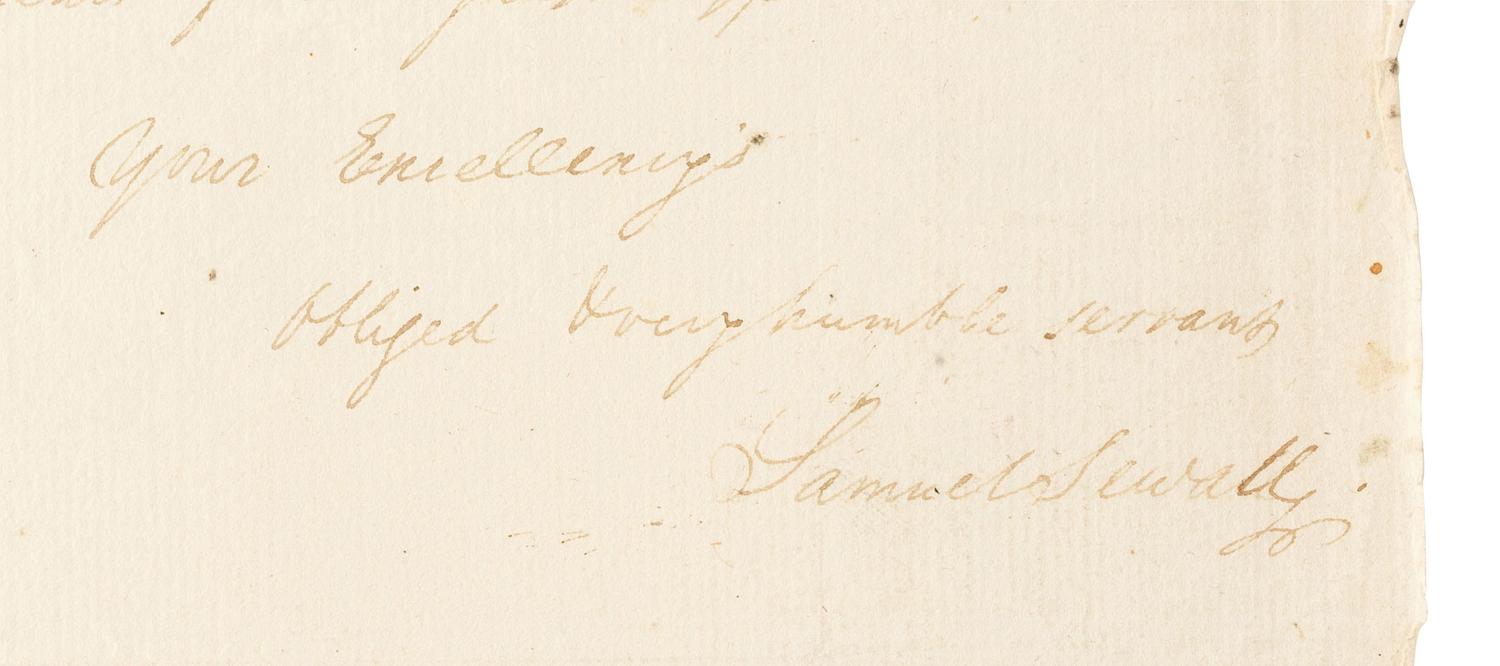 Your Excellency's
obliged & very humble servant
Samuel Sewall